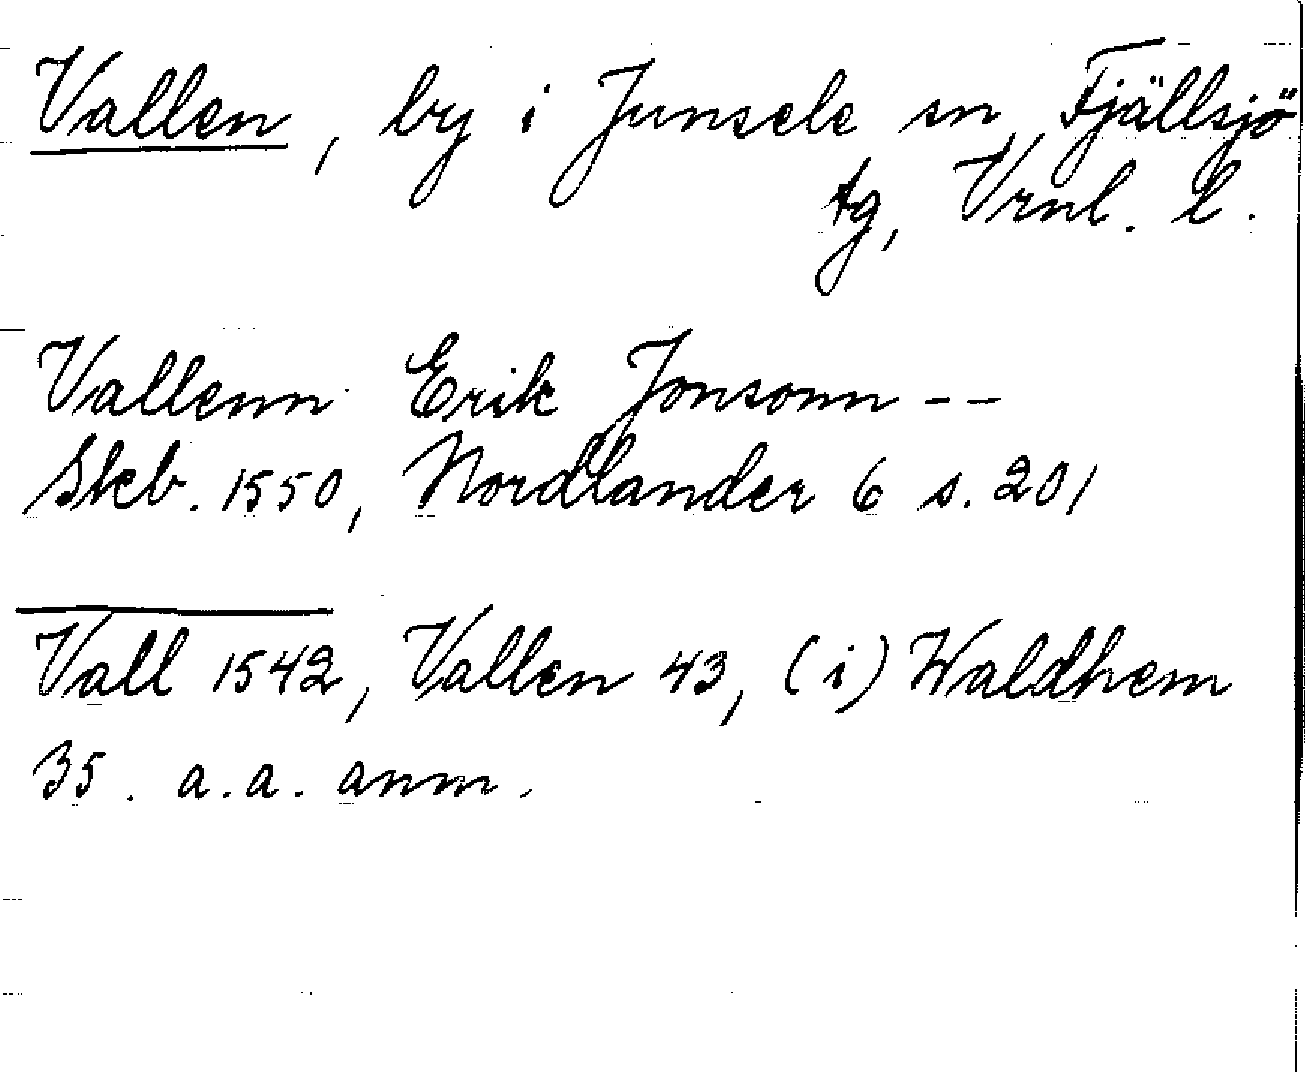 Vallen, by i Junsele sn, Fjällsjö
tg, Vrnl. l.
Vallenn Erik Jonsonn --
Skb. 1550, Nordlander 6 s. 201
Vall 1542, Vallen 43, (i) Waldhem
35. a.a. anm.